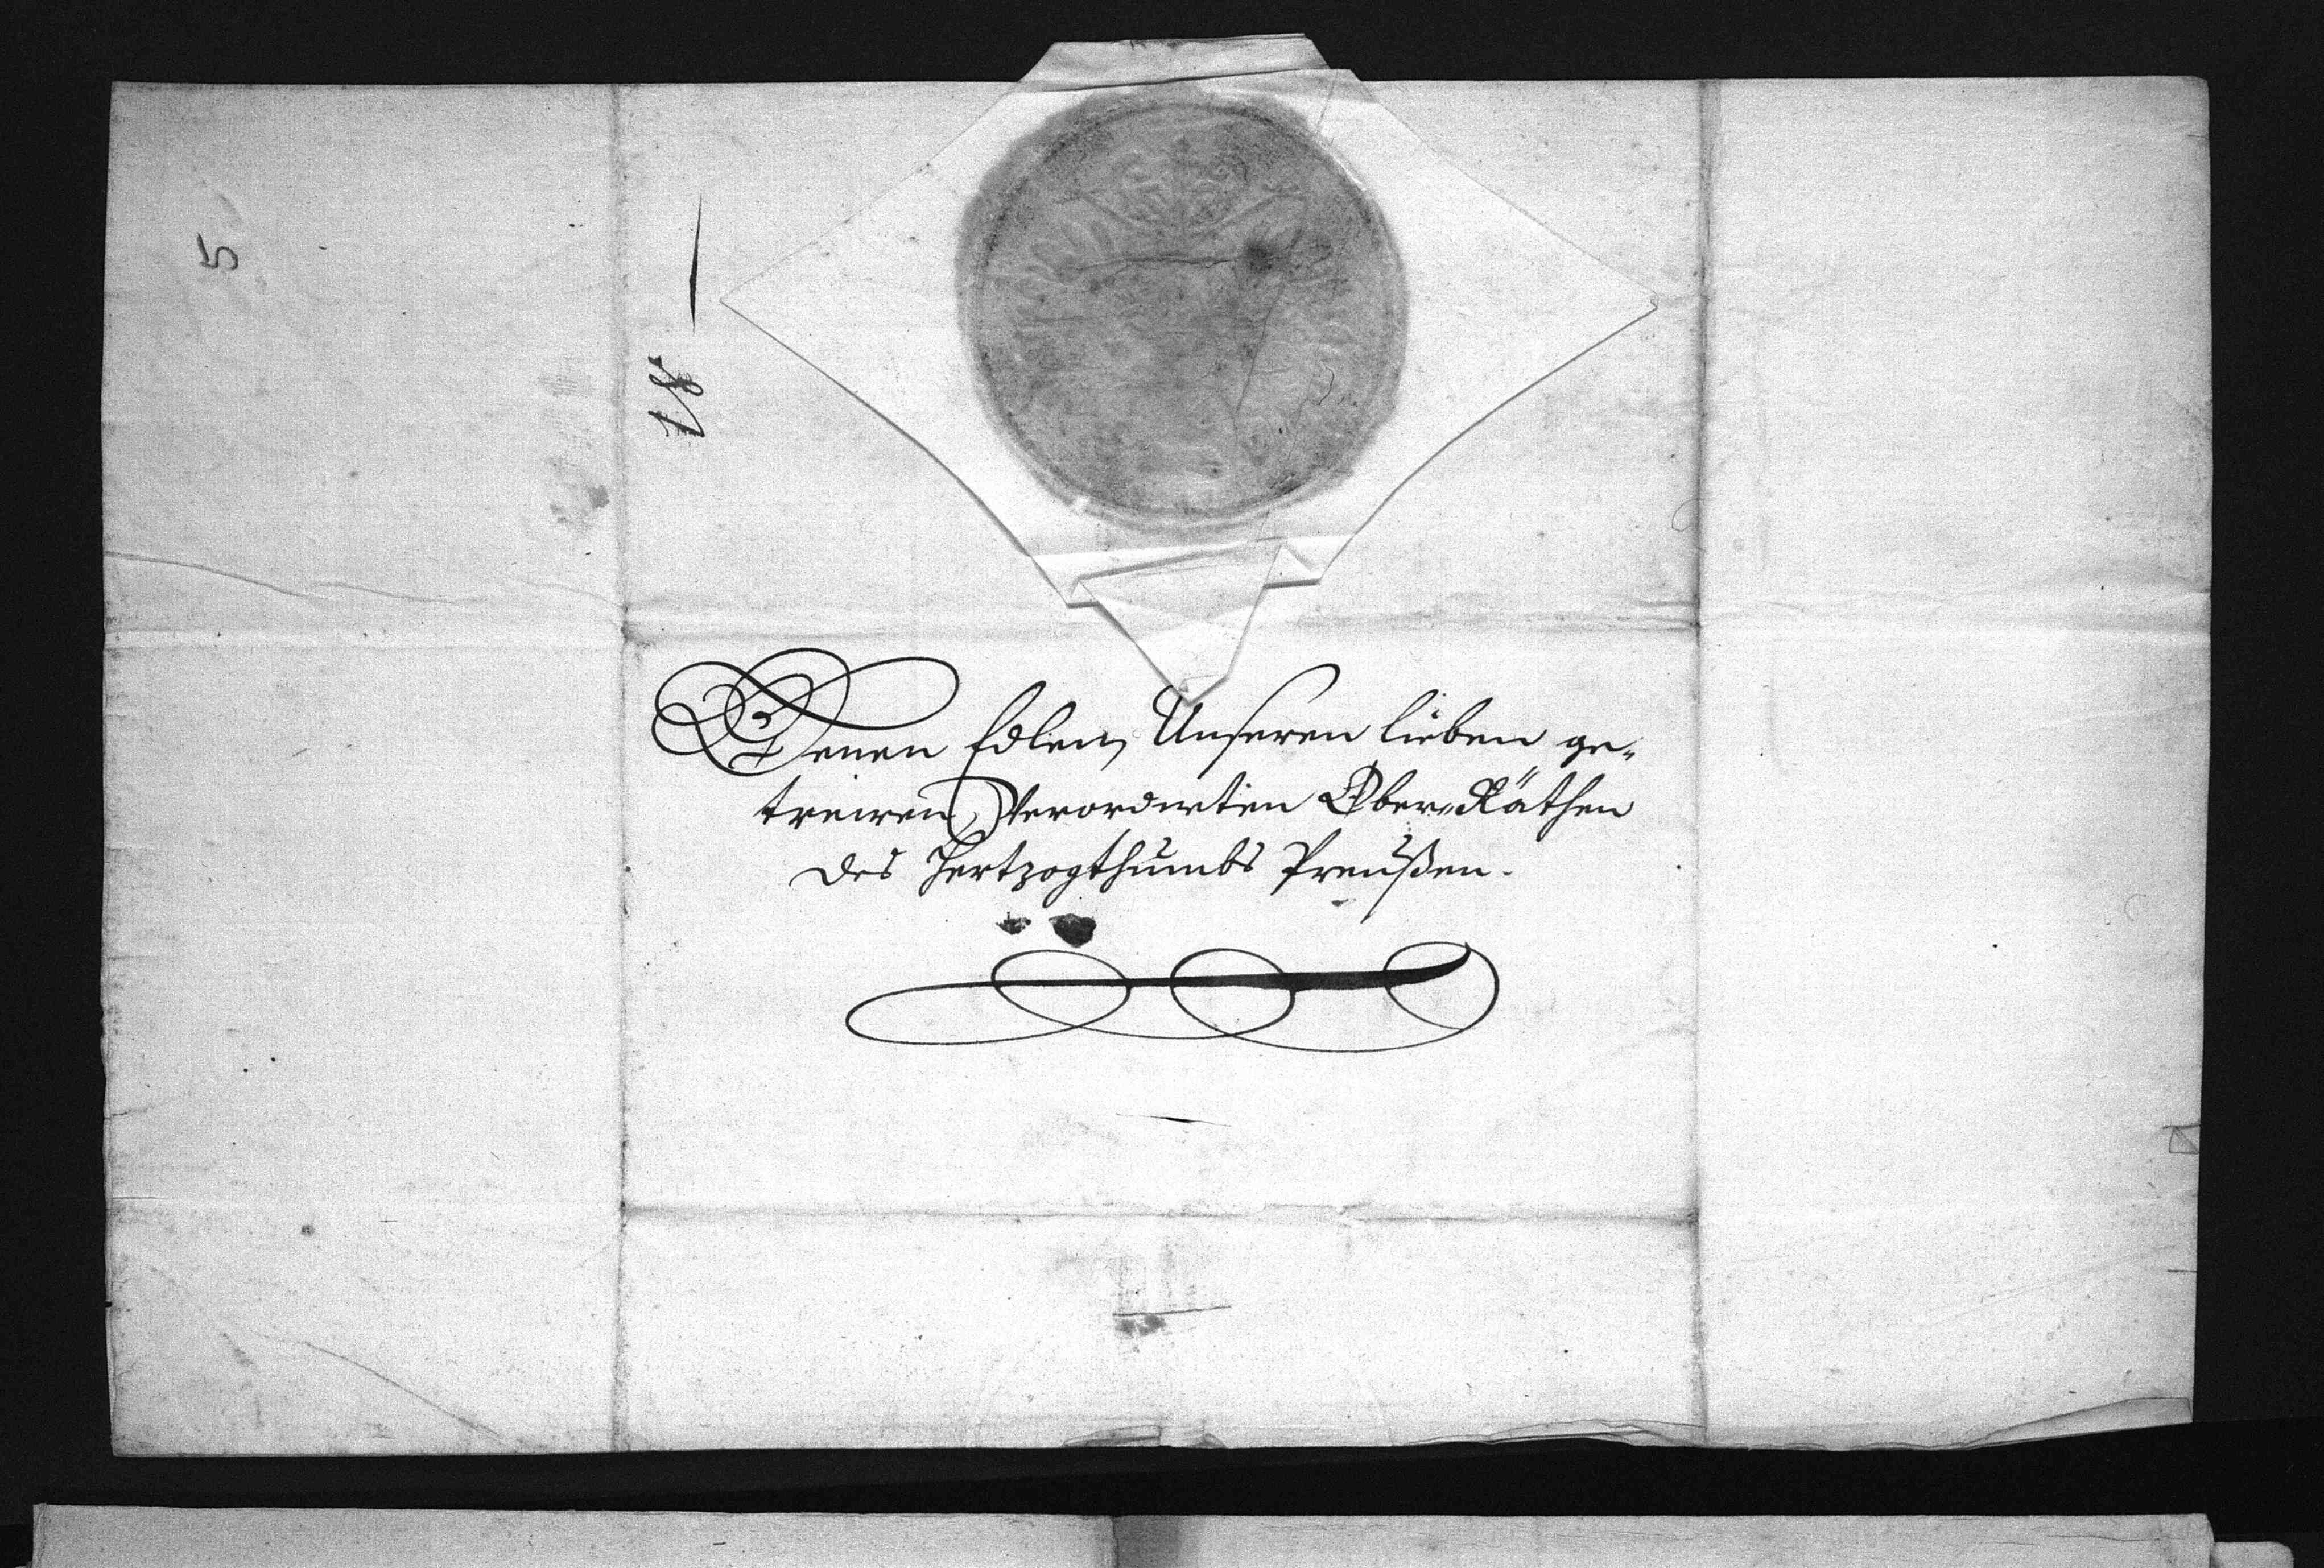 5
18
Denen Edlen, Unseren lieben ge-
treuen, Verordneten Ober-Räthen
des Hertzogthumbs Preußen.